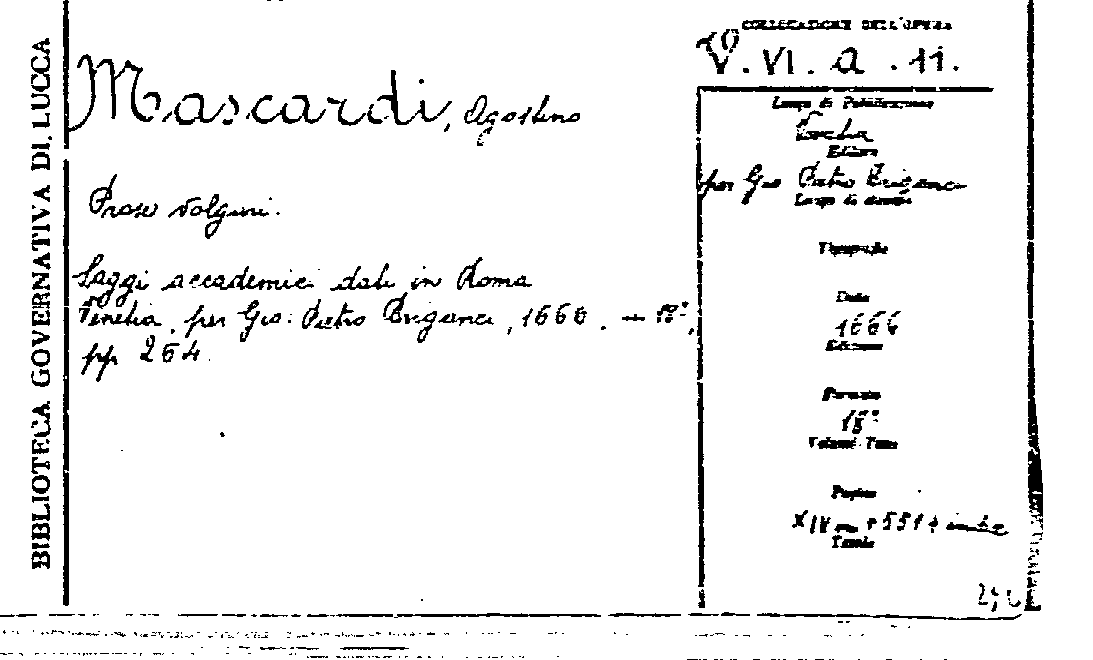 BIBLIOTECA GOVERNATIVA DI LUCCA
Mascardi, Agostino
Prose volgari.
Saggi accademici dati in Roma
Venetia, per Gio. Pietro Brigonci, 1666. — 18°,
pp 264
COLLOCAZIONE DELL'OPERA
V. VI. a. 11.
Luogo di Pubblicazione
Venetia
Editore
per Gio Pietro Brigonci
Luogo di stampa
Tipografia
Data
1666
Edizione
Formato
18°
Volumi-Tomi
Pagine
XIV + 551 +
Tavole